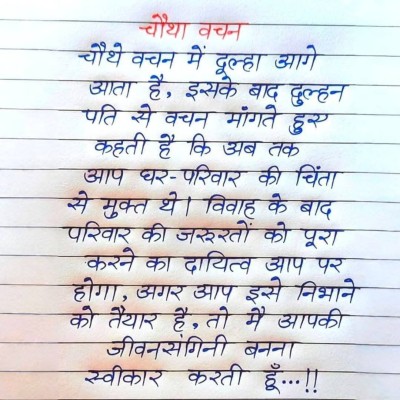 चौथा वचन
चौथे वचन में दूल्हा आगे
आता है, इसके बाद दुल्हन
पति से वचन मांगते हुए
कहती है कि अब तक
आप घर-परिवार की चिंता
से मुक्त थे। विवाह के बाद
परिवार की जरूरतों को पूरा
करने का दायित्व आप पर
होगा, अगर आप इसे निभाने
को तैयार हैं, तो मै आपकी
जीवनसंगिनी बनना
स्वीकार करती हूँ...!!